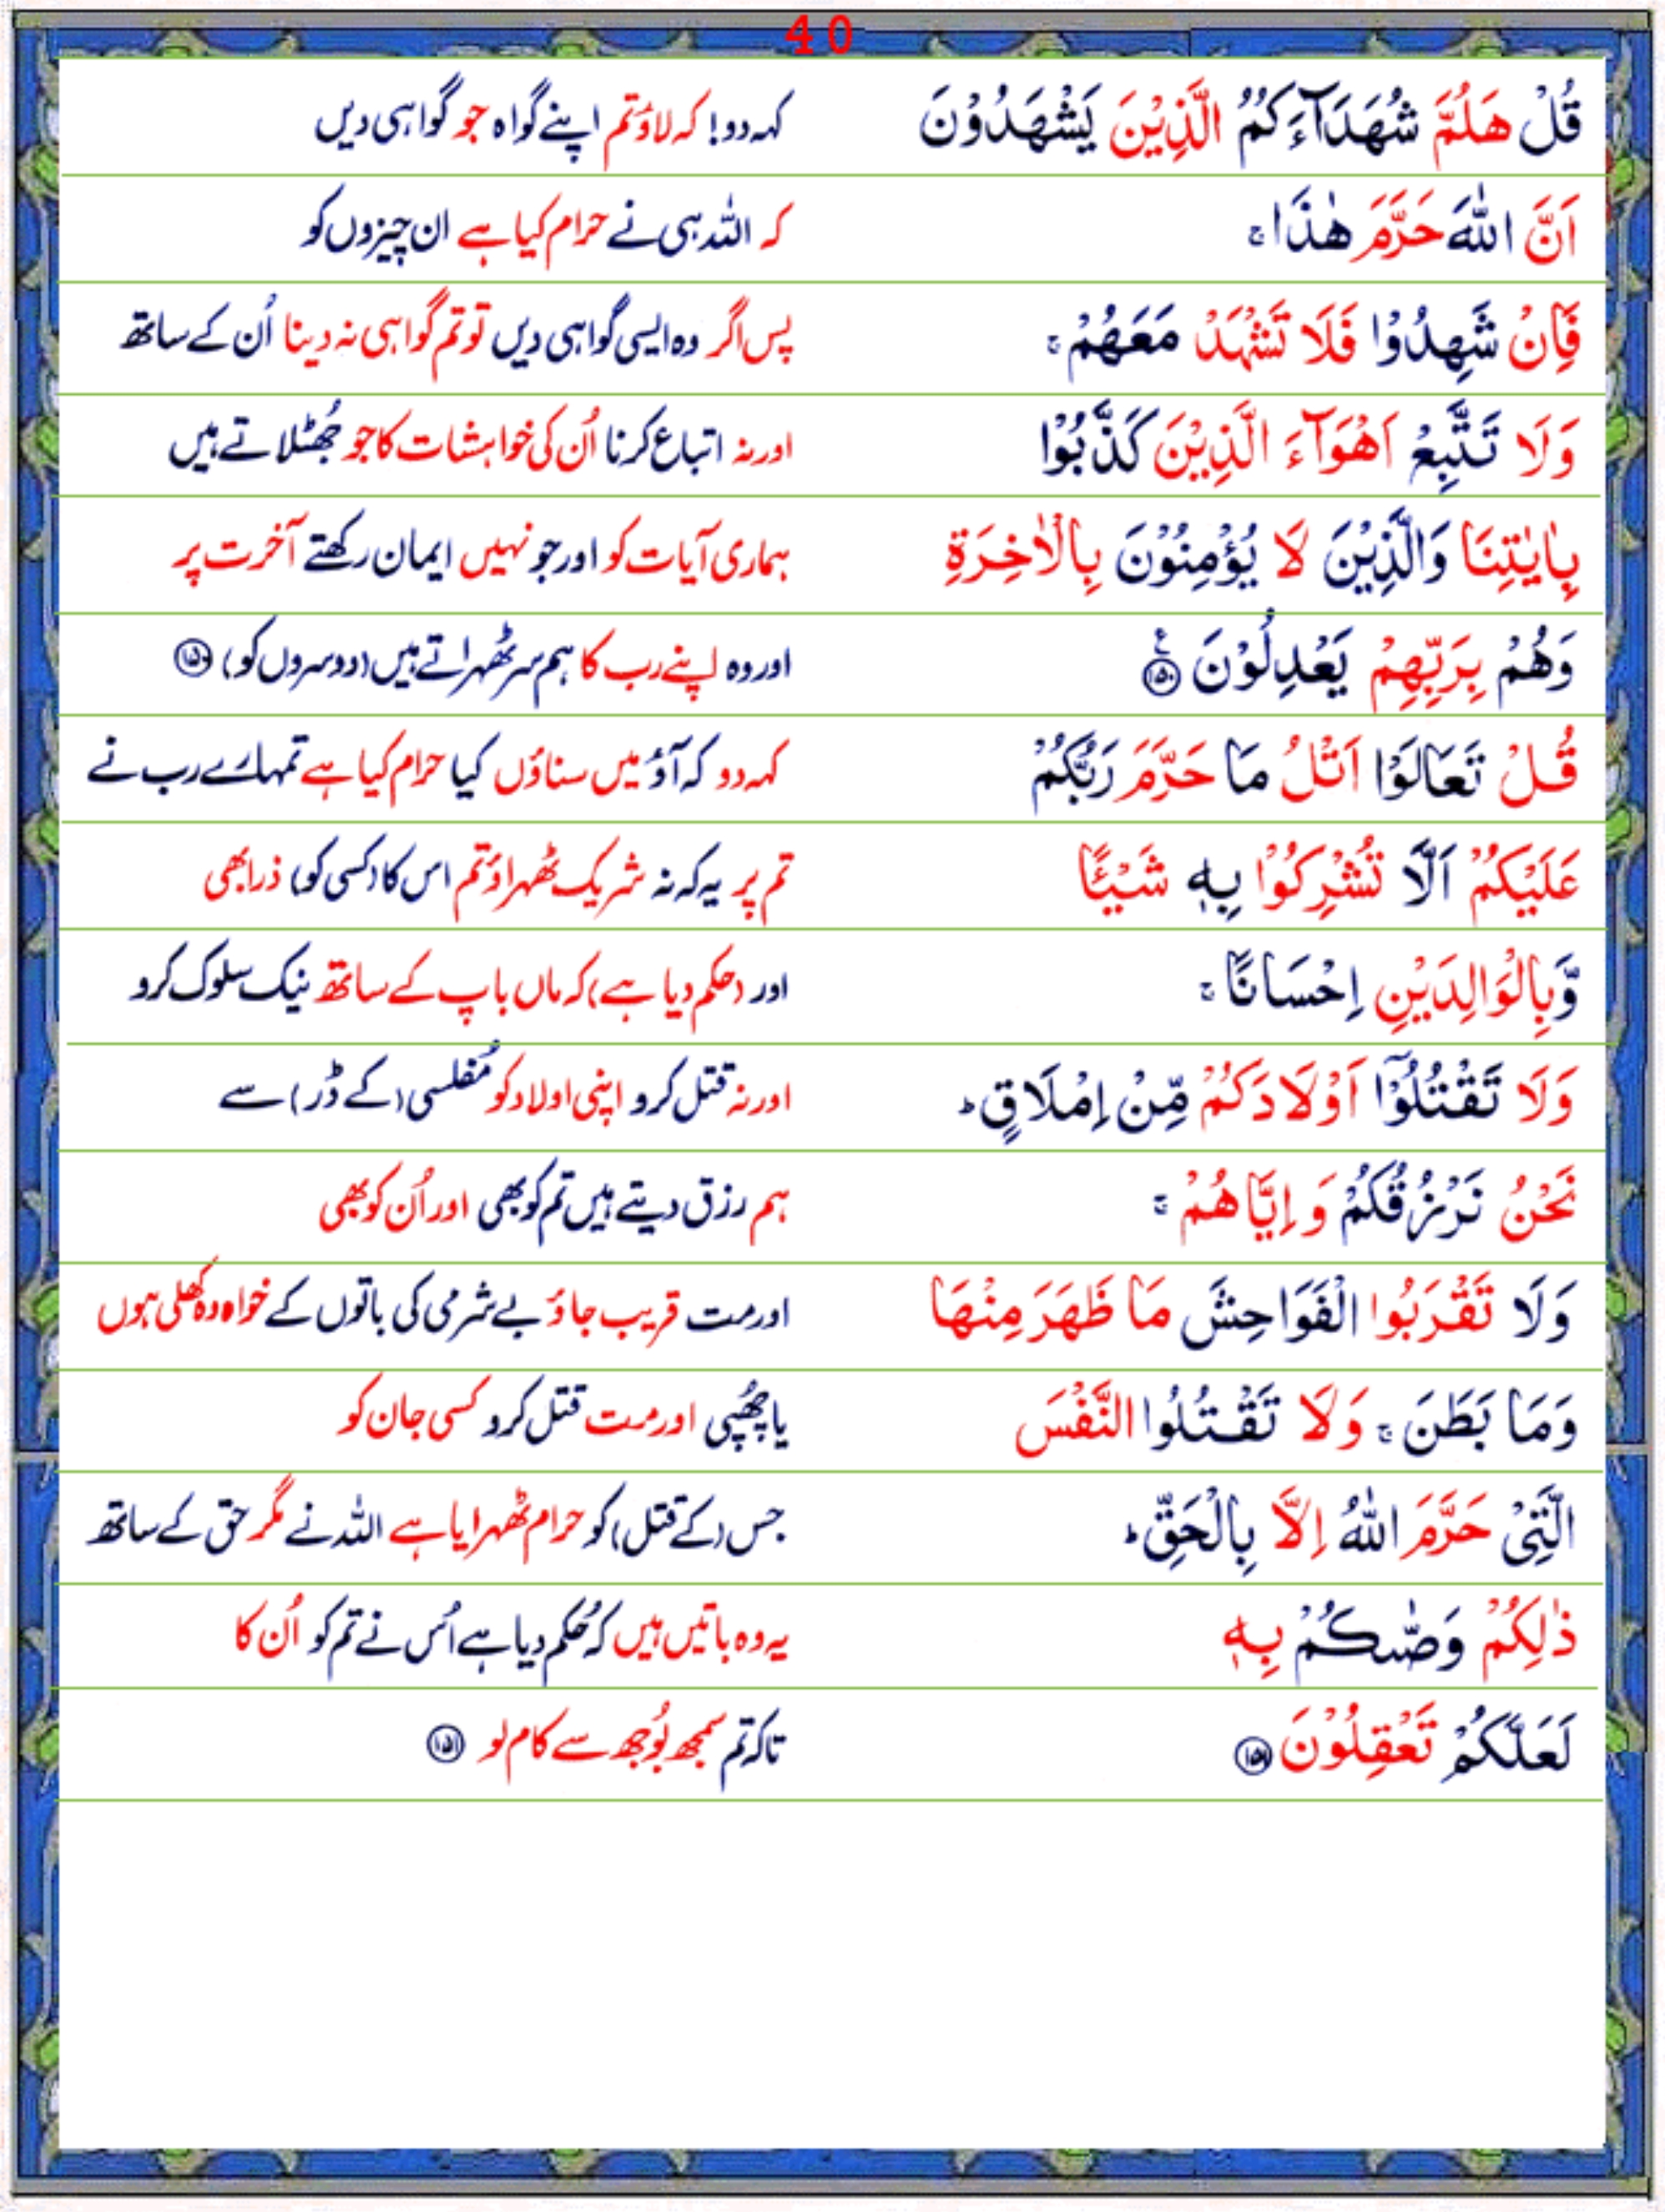 40
قُلْ هَلُمَّ شُهَدَآءَكُمُ الَّذِيْنَ يَشْهَدُوْنَ کہہ دو! کہ لاؤ تم اپنے گواہ جو گواہی دیں
اَنَّ اللّٰهَ حَرَّمَ هٰذَا ۚ کہ اللہ ہی نے حرام کیا ہے ان چیزوں کو
فَاِنْ شَهِدُوْا فَلَا تَشْهَدْ مَعَهُمْ ۚ پس اگر وہ ایسی گواہی دیں تو تم گواہی نہ دینا اُن کے ساتھ
وَلَا تَتَّبِعْ اَهْوَآءَ الَّذِيْنَ كَذَّبُوْا اور نہ اتباع کرنا اُن کی خواہشات کا جو جُھٹلاتے ہیں
بِاٰيٰتِنَا وَالَّذِيْنَ لَا يُؤْمِنُوْنَ بِالْاٰخِرَةِ ہماری آیات کو اور جو نہیں ایمان رکھتے آخرت پر
وَهُمْ بِرَبِّهِمْ يَعْدِلُوْنَ ۧ ﴿۱۵۰﴾ اور وہ اپنے رب کا ہم سر ٹھہراتے ہیں (دوسروں کو) ﴿۱۵۰﴾
قُلْ تَعَالَوْا اَتْلُ مَا حَرَّمَ رَبُّكُمْ کہہ دو کہ آؤ میں سناؤں کیا حرام کیا ہے تمہارے رب نے
عَلَيْكُمْ اَلَّا تُشْرِكُوْا بِهٖ شَيْـًٔا تم پر یہ کہ نہ شریک ٹھہراؤ تم اس کا (کسی کو) ذرا بھی
وَّبِالْوَالِدَيْنِ اِحْسَانًا ۚ اور (حکم دیا ہے) کہ ماں باپ کے ساتھ نیک سلوک کرو
وَلَا تَقْتُلُوْٓا اَوْلَادَكُمْ مِّنْ اِمْلَاقٍ ؕ اور نہ قتل کرو اپنی اولاد کو مُفلسی (کے ڈر) سے
نَحْنُ نَرْزُقُكُمْ وَ اِيَّاهُمْ ۚ ہم رزق دیتے ہیں تم کو بھی اور اُن کو بھی
وَلَا تَقْرَبُوا الْفَوَاحِشَ مَا ظَهَرَ مِنْهَا اور مت قریب جاؤ بے شرمی کی باتوں کے خواہ وہ کھلی ہوں
وَمَا بَطَنَ ۚ وَلَا تَقْتُلُوا النَّفْسَ یا چُھپی اور مت قتل کرو کسی جان کو
الَّتِىْ حَرَّمَ اللّٰهُ اِلَّا بِالْحَقِّ ؕ جس (کے قتل) کو حرام ٹھہرایا ہے اللہ نے مگر حق کے ساتھ
ذٰلِكُمْ وَصّٰىكُمْ بِهٖ یہ وہ باتیں ہیں کہ حُکم دیا ہے اُس نے تم کو اُن کا
لَعَلَّكُمْ تَعْقِلُوْنَ ﴿۱۵۱﴾ تاکہ تم سمجھ بُوجھ سے کام لو ﴿۱۵۱﴾